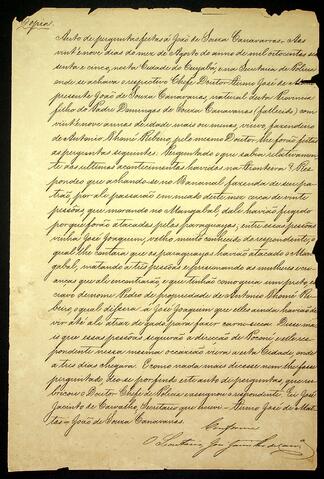 Copia
Auto de perguntas feitas á João de Souza Canavarros. Aos
vinte nove dias do mez de Agosto do anno de mil oito centos ses
senta e cinco, nesta Cidade de Cuyabá, e na Secretaria de Policia
onde se achava o respectivo Chefe Doutor Firmo José de Mattos
presente João de Souza Canavarros, natural desta Provincia
filho do Padre Domingos de Souza Canavarros (fallecido) com
vinte nove annos de idade mais ou menos, viuvo, fazendeiro
de Antonio Thomé Ribeiro, pelo mesmo Doutor lhe forão feitas
as perguntas seguintes. Perguntado o que sabia relativamen
te aos ultimos acontecimentos havidos na fronteira? Res
pondeo que achando-se no Bananal fazenda de seu pa
trão, por ali passarão em maio deste mez cerca de vinte
pessoas que morando no Mangabal, dahi havião fugido
por que forão atacadas pelos paraguayos, entre essas pessoas
vinha José Joaquim, velho muito conhecido do respondente, o
qual lhe contara que os paraguayos havião atacado o Man
gabal, matando a tres pessoas e prisionando as mulheres e cri
anças que ali encontrarão e que tinhão como guia um preto es
cravo de nome Pedro de propriedade de Antonio Thomé Ri
beiro o qual dissera á José Joaquim que elles ainda havião de
vir até ali atraz de gado para fazer carne secca. Disse mais
que essas pessoas seguirão a direcção de Poconé e elle res
pondente nessa mesma occasião viera a esta Cidade, onde
a tres dias chegara. E como nada mais dissesse nem lhe fosse
perguntado, deo-se por findo este auto de perguntas que ru
bricou o Doutor Chefe de Policia e assignou o respondente. Eu José
Jacintho de Carvalho, Secretario que escrevi. Firmo José de Mat
tos. João de Souza Canavarros.
Conforme
O Secretario José Jacintho de Carvalho